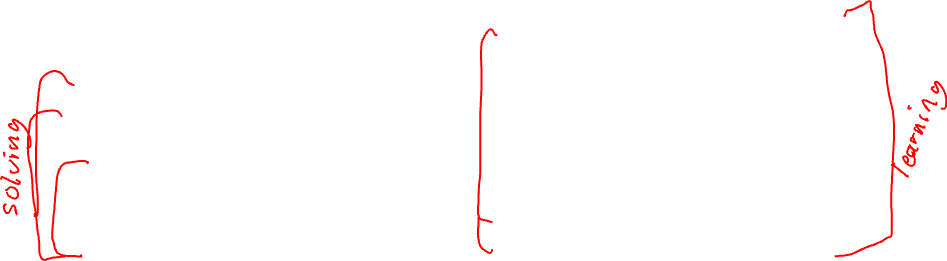 solving
learning